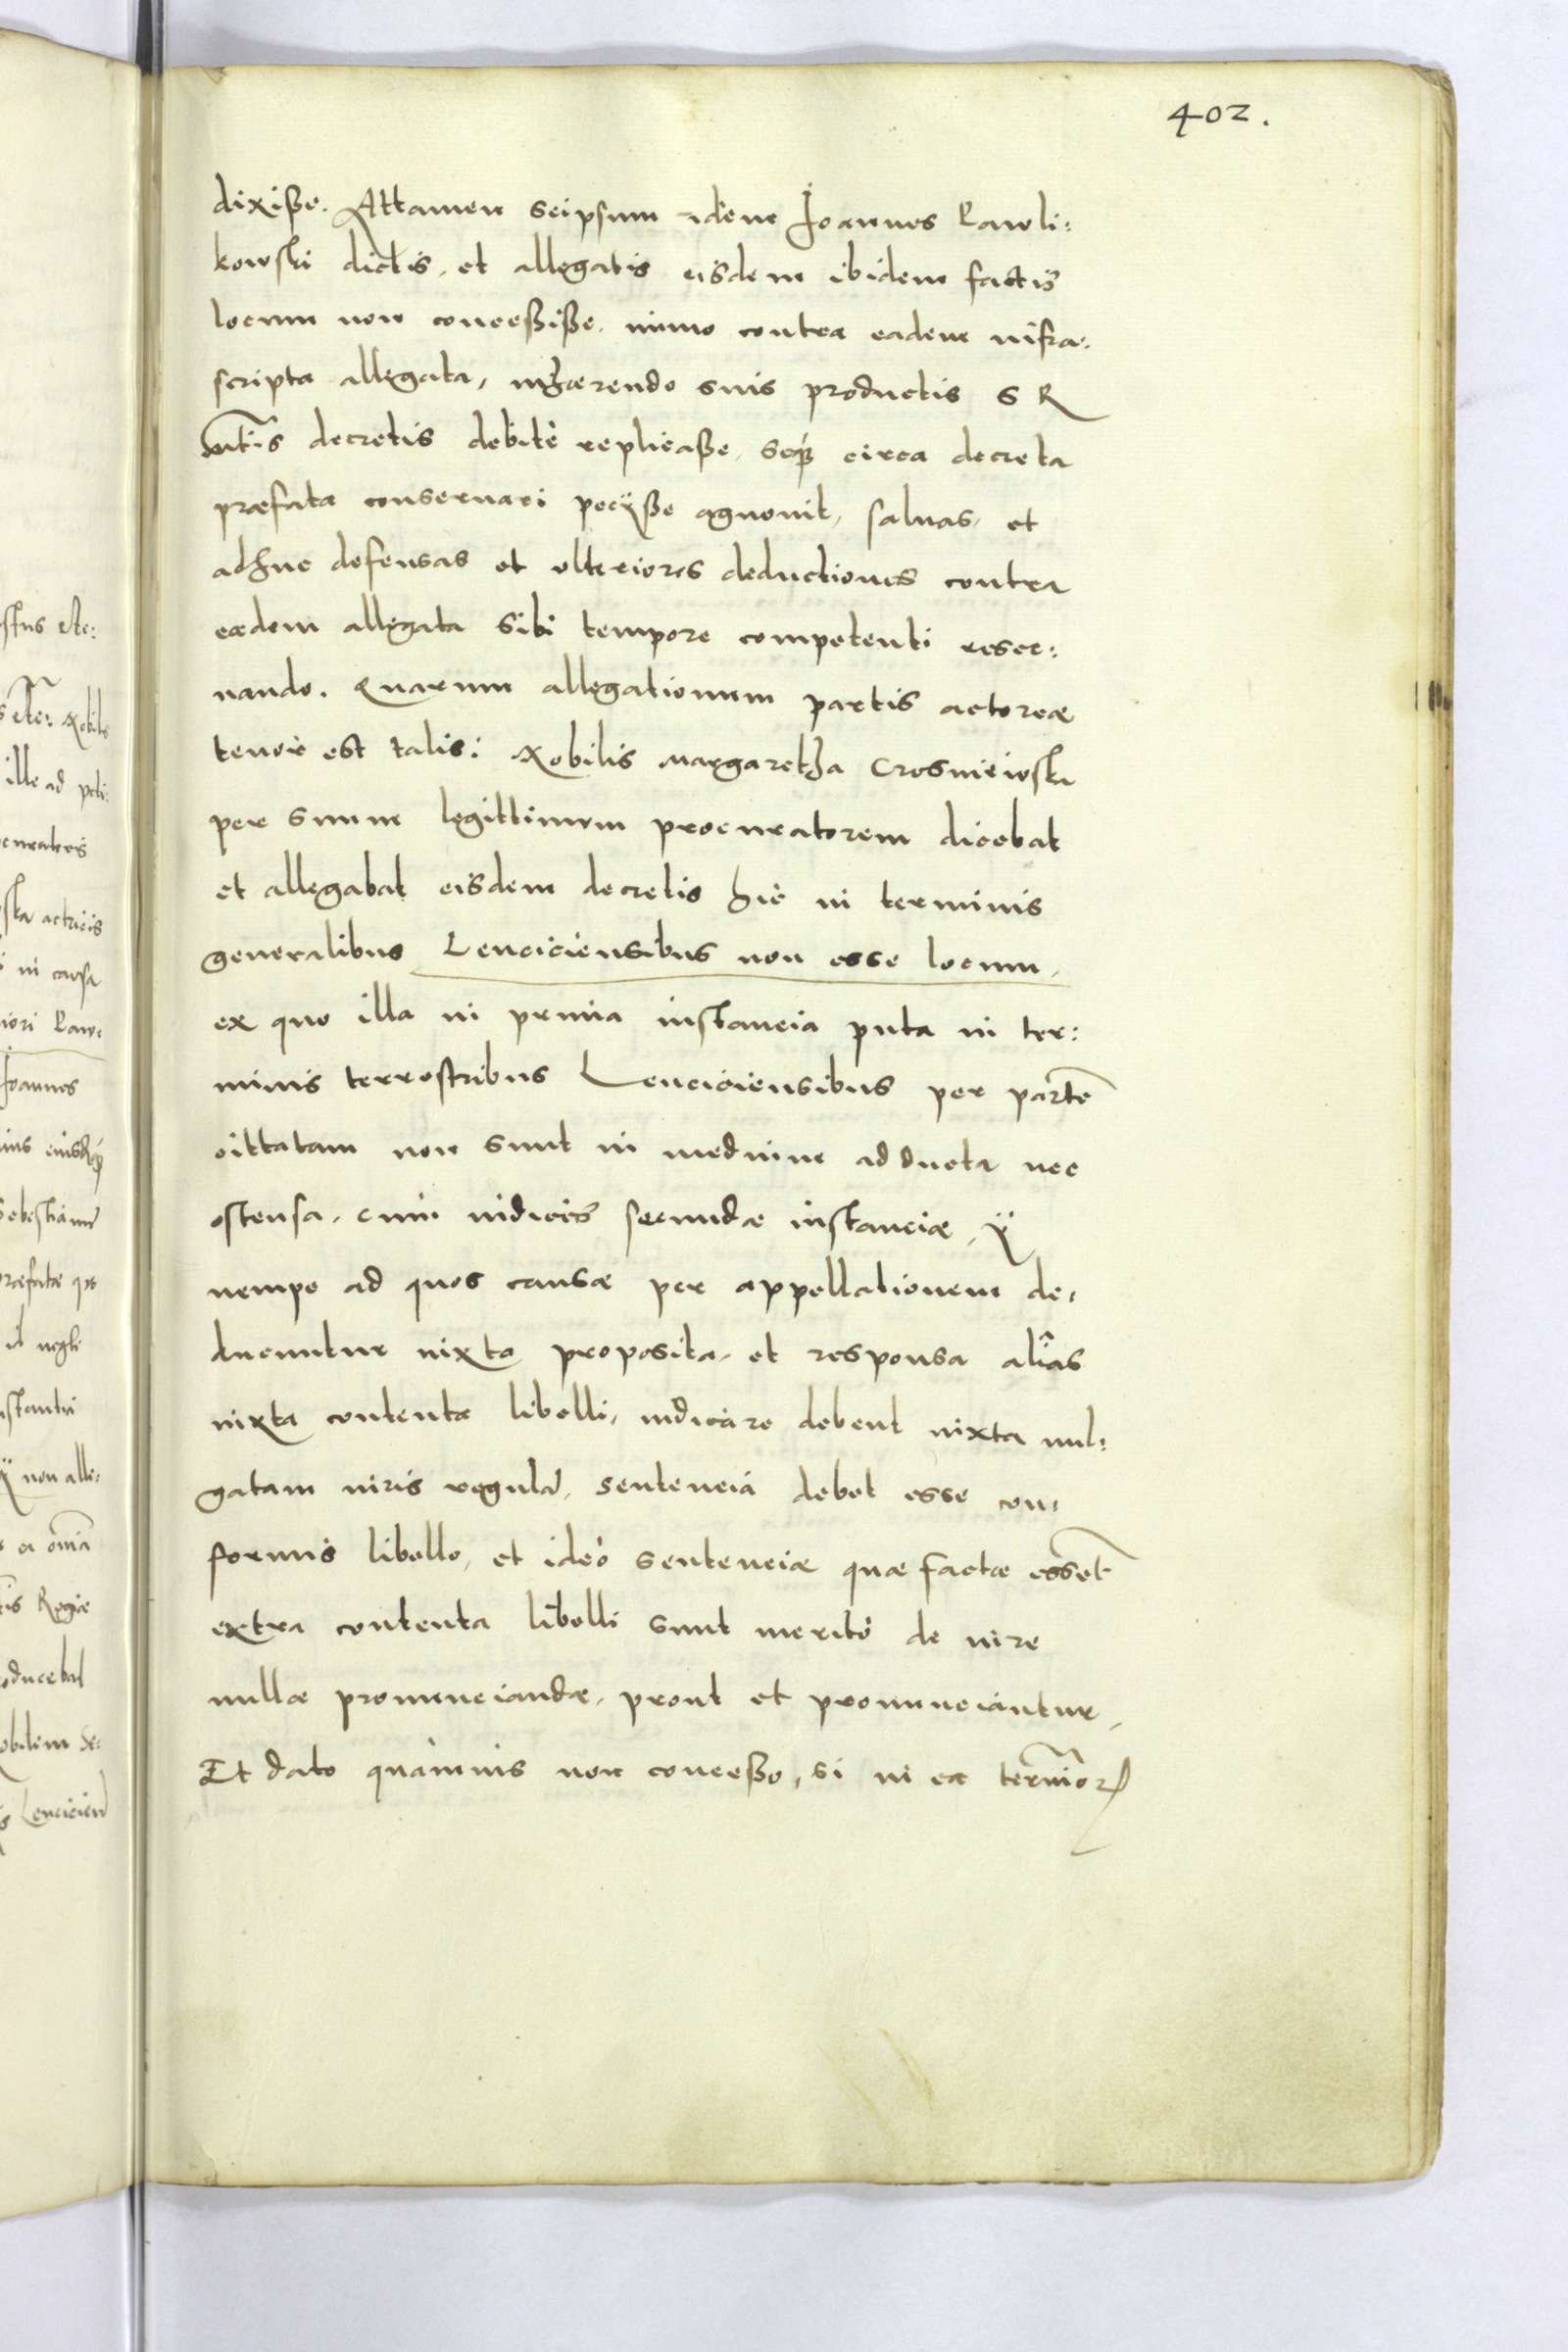 402.
dixisse. Attamen seipsum idem Joannes Rawli:
kowski dictis, et allegatis eisdem ibidem factis
locum non concessisse, immo contra eadem infra:
scripta allegata, inhærendo suis productis S R
Mtis decretis debite replicasse, seq3 circa decreta
præfata conservari peciisse agnouit, saluas, et
adhuc defensas et vlteriores deductiones contra
eadem allegata sibi tempore competenti reser:
uando. Quarum allegationum partis actoreæ
tenor est talis: Nobilis Margaretha Crosniewska
per suum legittimum procuratorem dicebat
et allegabat eisdem decretis hic in terminis
generalibus Lenciciensibus non esse locum,
ex quo illa in prima instancia puta in ter:
minis terrestribus Lenciciensibus per parte
cittatam non sunt in medium adducta nec
ostensa, cum iudices secundæ instanciæ, ij
nempe ad quos causæ per appellationem de:
ducuntur iuxta proposita, et responsa alias
iuxta contenta libelli, iudicare debent iuxta uul:
gatam iuris regula, sentencia debet esse con:
formis libello, et ideo sentenciæ quæ factæ essent
extra contenta libelli sunt merito de iure
nullæ pronunciandæ, prout et pronunciantur,
Et dato quamuis non concesso, si in ea terminor
stus etc:
s etc: Nobilis
ille ad peti:
curatoris
ska actricis
i in causa
iori Raw:
Joannes
Sebestianu
præfatæ
it negli
nstantia
ij non alle:
ea omia
tis Regiæ
oducebat
obilem
s Lencicien